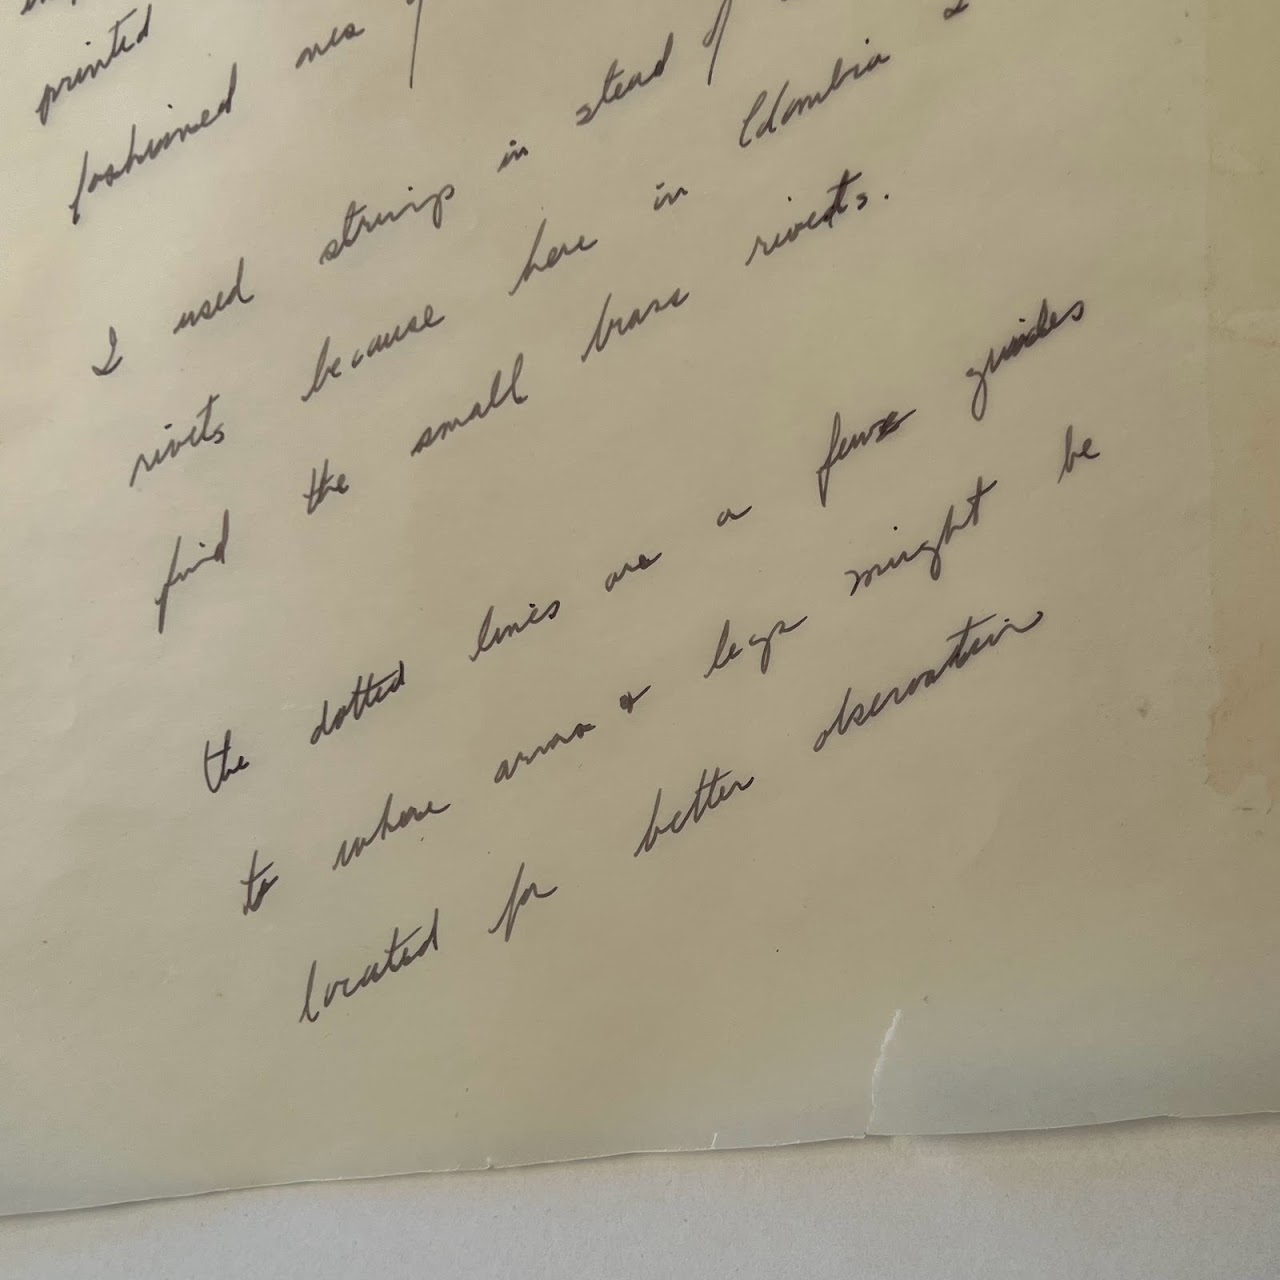 printed
fashioned ones
I used strings in stead of
rivets because here in Colombia I
find the small brass rivets.
the dotted lines are a few guides
to where arms & legs might be
located for better observation